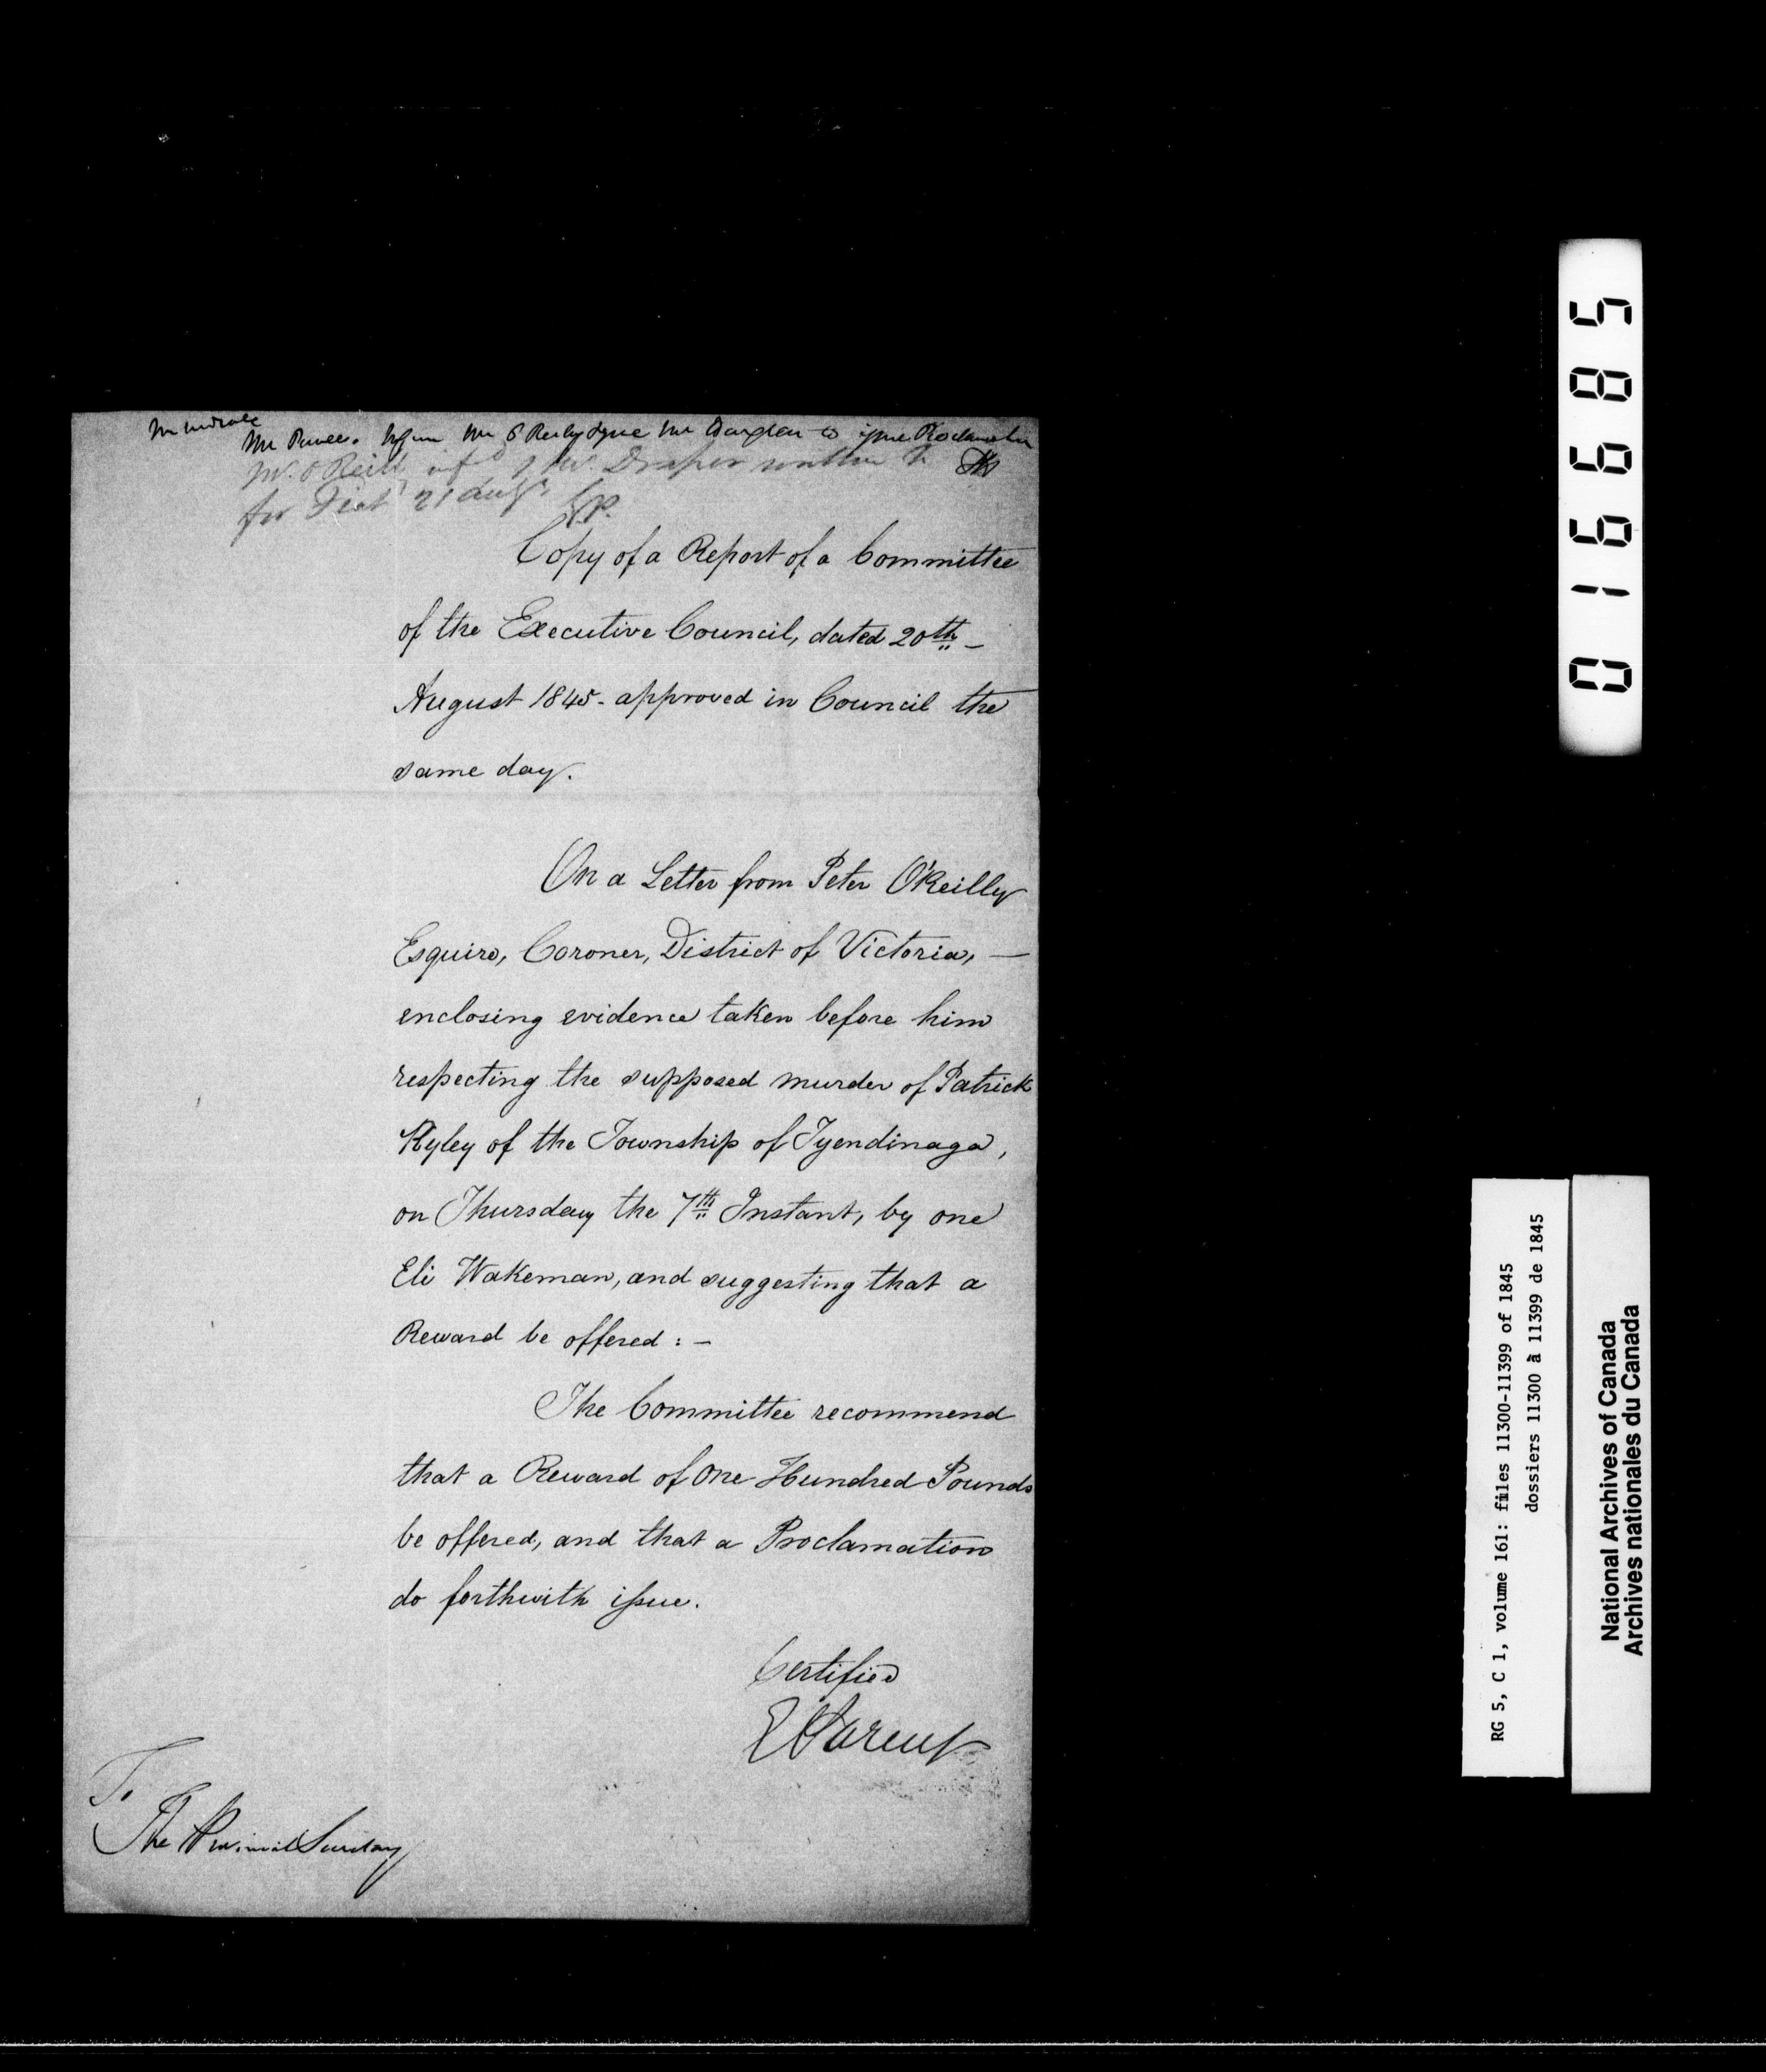 Mr O'Reilly Mr to issue Proclamation
Mr. O'Reilly inf^d Mr. Draper written to
for Fiat 21 Aug^t
Copy of a Report of a Committee
of the Executive Council, dated 20th –
August 1845 – approved in Council the
same day.
On a Letter from Peter O'Reilly
Esquire, Coroner, District of Victoria, —
enclosing evidence taken before him
respecting the supposed murder of Patrick
Ryley of the Township of Tyendinaga,
on Thursday the 7th Instant, by one
Eli Wakeman, and suggesting that a
Reward be offered : –
The Committee recommend
that a Reward of One Hundred Pounds
be offered, and that a Proclamation
do forthwith issue.
Certified
E Parent
To
The Provincial Secretary
016685
RG 5, C 1, volume 161: files 11300-11399 of 1845
dossiers 11300 à 11399 de 1845
National Archives of Canada
Archives nationales du Canada